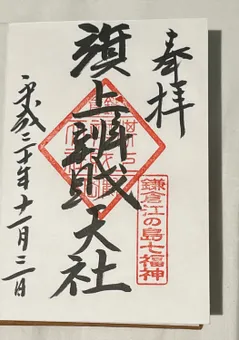 奉拝
鎌倉江の島七福神
旗上辨財天社
平成三十年十一月三日